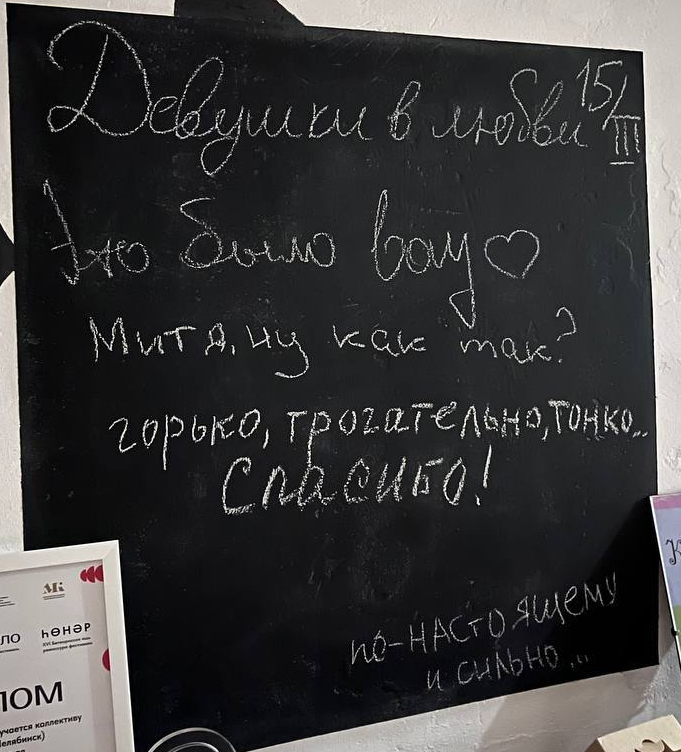 Девушки в любви 15/III
Это было вау♡
Митя, ну как так?
горько, трогательно, тонко..
Спасибо!
по-настоящему
и сильно...
МК
ҺӨНӘР
ЛОМ
учается коллективу
Челябинск)